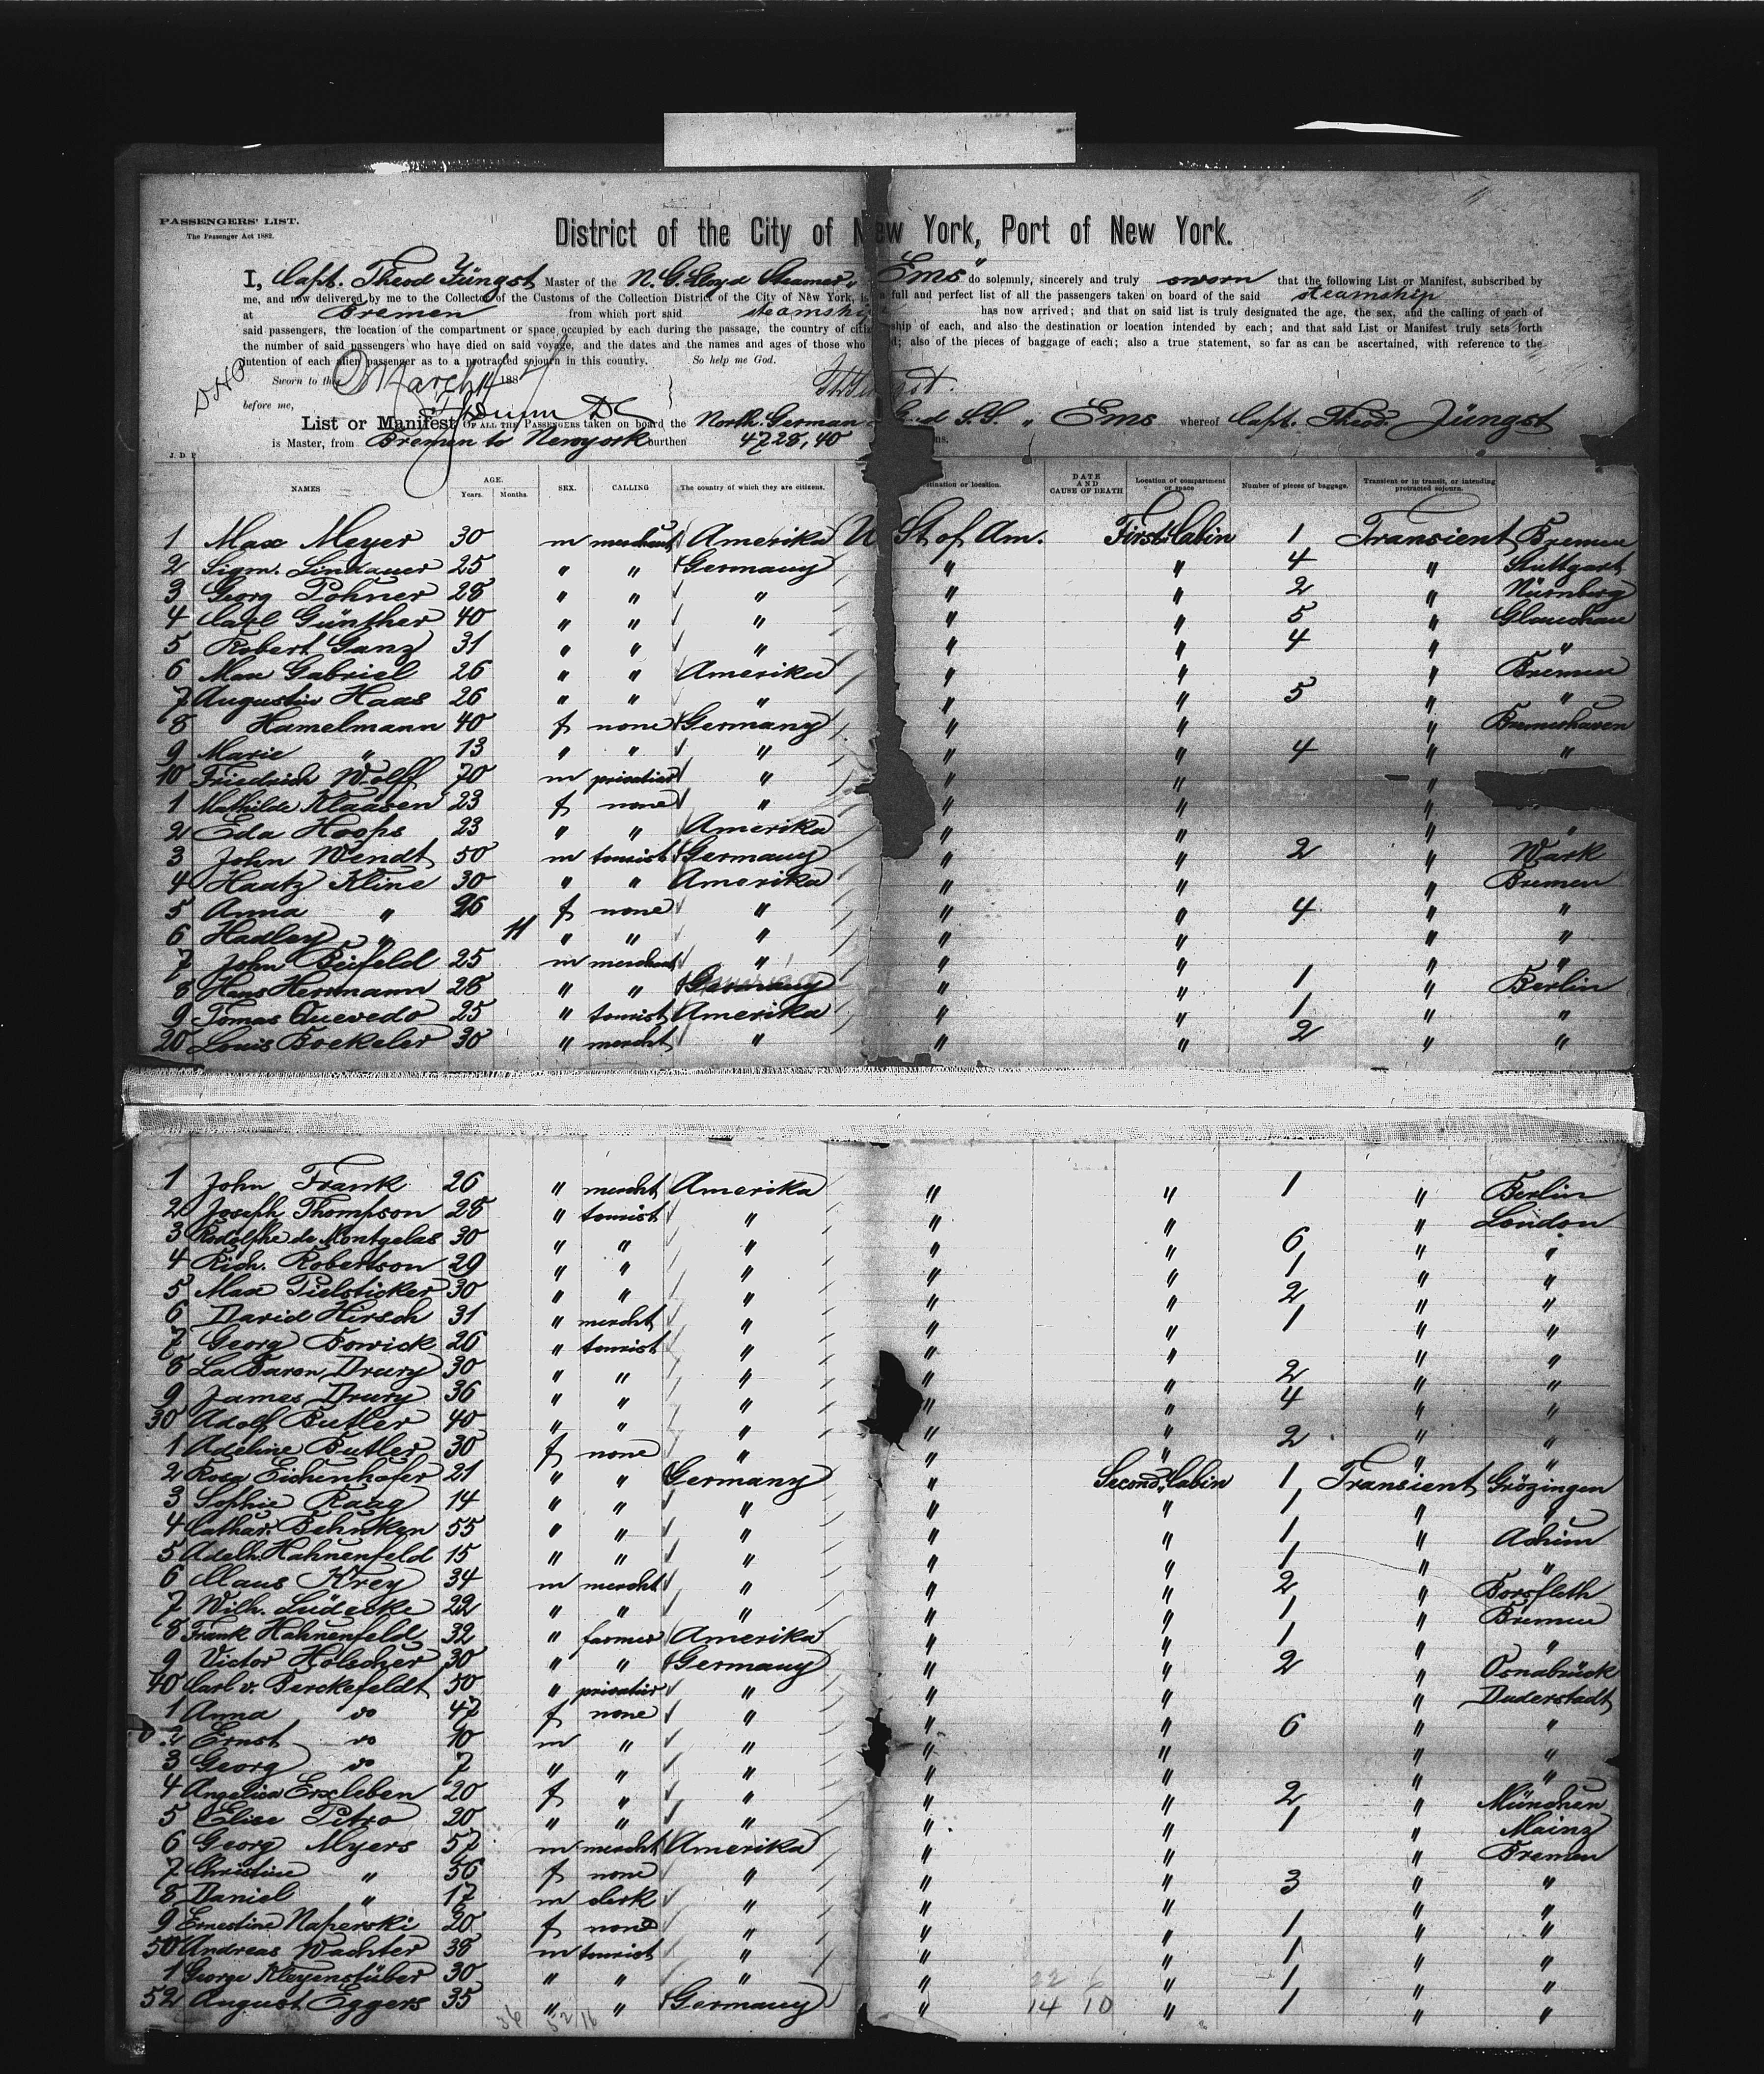 PASSENGERS' LIST.
The Passenger Act 1882.
District of the City of New York, Port of New York.
I, Capt. Theod Jüngst Master of the N. G. Lloyd Steamer "Ems" do solemnly, sincerely and truly sworn that the following List or Manifest, subscribed by
me, and now delivered by me to the Collector of the Customs of the Collection District of the City of New York, is a full and perfect list of all the passengers taken on board of the said steamship
at Bremen from which port said steamship has now arrived; and that on said list is truly designated the age, the sex, and the calling of each of
said passengers, the location of the compartment or space occupied by each during the passage, the country of citizenship of each, and also the destination or location intended by each; and that said List or Manifest truly sets forth
the number of said passengers who have died on said voyage, and the dates and the names and ages of those who died; also of the pieces of baggage of each; also a true statement, so far as can be ascertained, with reference to the
intention of each alien passenger as to a protracted sojourn in this country. So help me God.
Sworn to this March 188
before me,
List or Manifest OF ALL THE PASSENGERS taken on board the North. German S.S. "Ems whereof Capt. Theod. Jüngst
is Master, from Bremen to Newyork burthen 4728,40 tons.
NAMES AGE. Years. Months. SEX. CALLING The country of which they are citizens. destination or location. DATE AND CAUSE OF DEATH Location of compartment or space Number of pieces of baggage. Transient or in transit, or intending protracted sojourn.
1 Max Meyer 30 m merchant Amerika U St of Am. First Cabin 1 Transient Bremen
2 Sigm. Lindauer 25 " " Germany " " 4 " Stuttgart
3 Georg Pohner 28 " " " " " 2 " Nürnberg
4 Carl Günther 40 " " " " " 5 " Glauchau
5 Robert Ganz 31 " " " " " 4 " "
6 Max Gabriel 26 " " Amerika " " " Bremen
7 Augustin Haas 26 " " " " " 5 " "
8 Hamelmann 40 f none Germany " " " Bremerhaven
9 Marie " 13 " " " " " 4 " "
10 Friedrich Wolff 70 m privatier " " " "
1 Mathilde Klaasen 23 f none " " " "
2 Eda Hoops 23 " " Amerika " " " "
3 John Wendt 50 m tourist Germany " " 2 " Wark
4 Haatz Kline 30 " " Amerika " " " Bremen
5 Anna " 26 f none " " " 4 " "
6 Hadley " 11 " " " " " " "
7 John Beifeld 25 m merchant " " " " "
8 Hans Herrmann 28 " " Germany " " 1 " Berlin
9 Tomas Quevedo 25 " tourist Amerika " " 1 " "
20 Louis Boekeler 30 " mercht " " " 2 " "
1 John Frank 26 " mercht Amerika " " 1 " Berlin
2 Joseph Thompson 28 " tourist " " " " London
3 Rodolphe de Montgelas 30 " " " " " 6 " "
4 Rich. Robertson 29 " " " " " 1 " "
5 Max Pielsticker 30 " " " " " 2 " "
6 David Hirsch 31 " mercht " " " 1 " "
7 Georg Bowick 26 " tourist " " " " "
8 La Baron Drury 30 " " " " " 2 " "
9 James Drury 36 " " " " " 4 " "
30 Adolf Butler 40 " " " " " 2 " "
1 Adeline Butler 30 f none " " " " "
2 Rosa Eichenhofer 21 " " Germany " Second Cabin 1 Transient Grözingen
3 Sophie Raag 14 " " " " " 1 " "
4 Cathar. Behnken 55 " " " " " 1 " Achim
5 Adelh. Hahnenfeld 15 " " " " " 1 " "
6 Claus Krey 34 m mercht " " " 2 " Borsfleth
7 Wilh. Lüdecke 22 " " " " " 1 " Bremen
8 Frank Hahnenfeld 32 " farmer Amerika " " 1 " "
9 Victor Hölscher 30 " " Germany " " 2 " Osnabrück
40 Carl v. Berckefeldt 50 " privatier " " " " Duderstadt
1 Anna do 47 f none " " " 6 " "
2 Ernst do 10 m " " " " " "
3 Georg do 7 " " " " " " "
4 Angelica Erxleben 20 f " " " " 2 " München
5 Elise Petro 20 " " " " " 1 " Mainz
6 Georg Myers 57 m mercht Amerika " " " Bremen
7 Christine " 56 f none " " " 3 " "
8 Daniel " 17 m clerk " " " " "
9 Ernestine Naperski 20 f none " " " 1 " "
50 Andreas Wachter 38 m tourist " " " 1 " "
1 George Kleyenstüber 30 " " " " " 1 " "
52 August Eggers 35 " " Germany " 14 10 " 1 " "